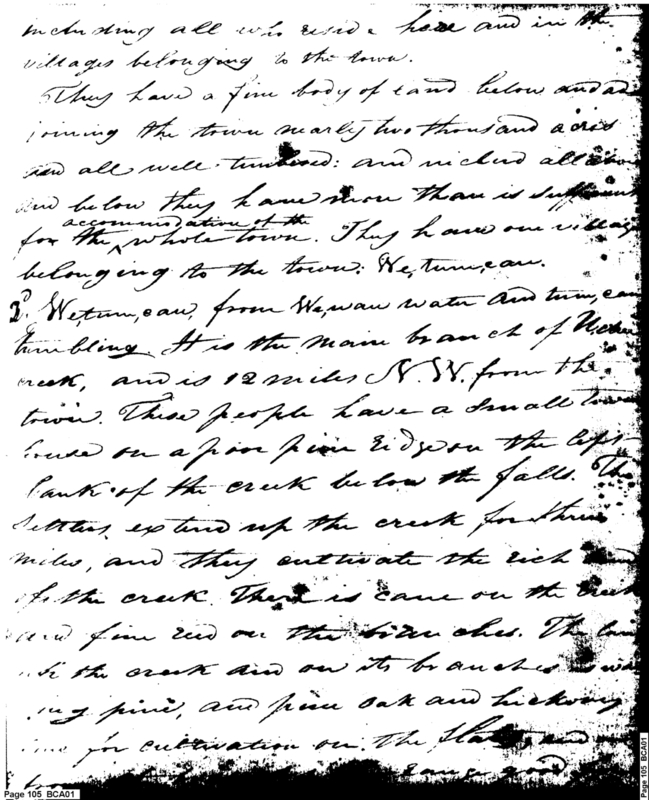 including all who reside here and in the
villages belonging to the town.
They have a fine body of land below and ad
joining the town nearly two thousand acres
and all well timbered: and richer all above
and below they have more than is sufficient
accommodation of the
for the ^ whole town. They have one village
belonging to the town: We,tum,cau.
2d We,tum,cau, from We,wau water and tum,cau
tumbling. It is the main branch of Uchee
creek, and is 12 miles N. W. from the
town. These people have a small town
house on a poor pine ridge on the left
bank of the creek below the falls. The
settlers extend up the creek for three
miles, and they cultivate the rich
of the creek. There is cane on the creek
and fine reed on the branches. The land
the creek and on its branches is wav
ing pine, and pine oak and hickory
for cultivation on the flats, and
range good
Page 105 BCA01
Page 105 BCA01